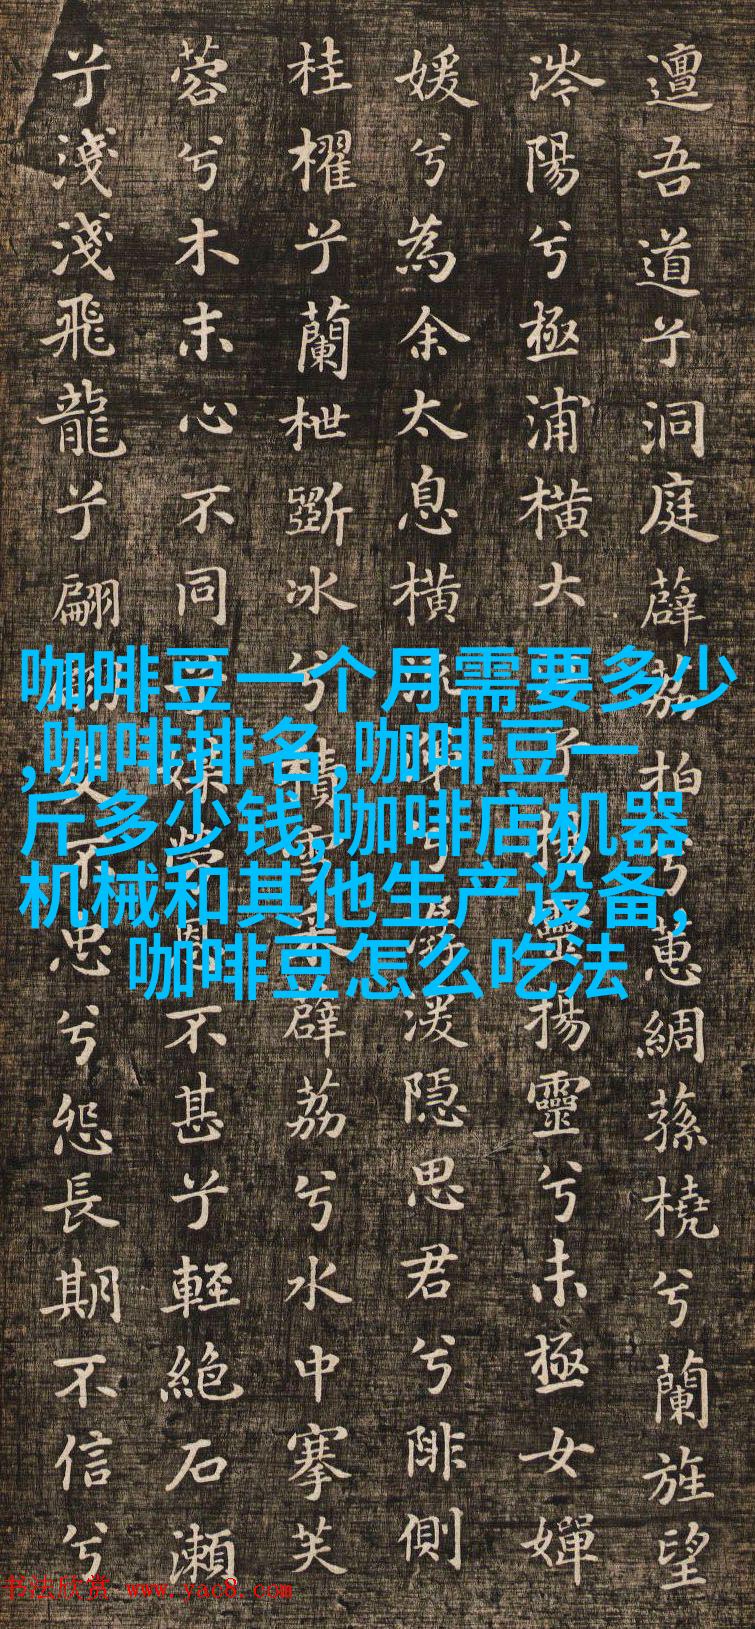 邅吾道兮洞庭薜荔拍兮蕙綢蓀橈兮蘭旌望
涔陽兮極浦橫大江兮揚靈揚靈兮未極女嬋
媛兮為余太息橫流涕兮潺湲隱思君兮陫側
桂櫂兮蘭枻斲冰兮積雪采薜荔兮水中搴芙
蓉兮木末心不同兮媒勞恩不甚兮輕絕石瀨
兮淺淺飛龍兮翩翩交不忠兮怨長期不信兮
咖啡豆一个月需要多少
,咖啡排名,咖啡豆一
斤多少钱,咖啡店机器
机械和其他生产设备,
咖啡豆怎么吃法
书法欣赏 www.yac8.com